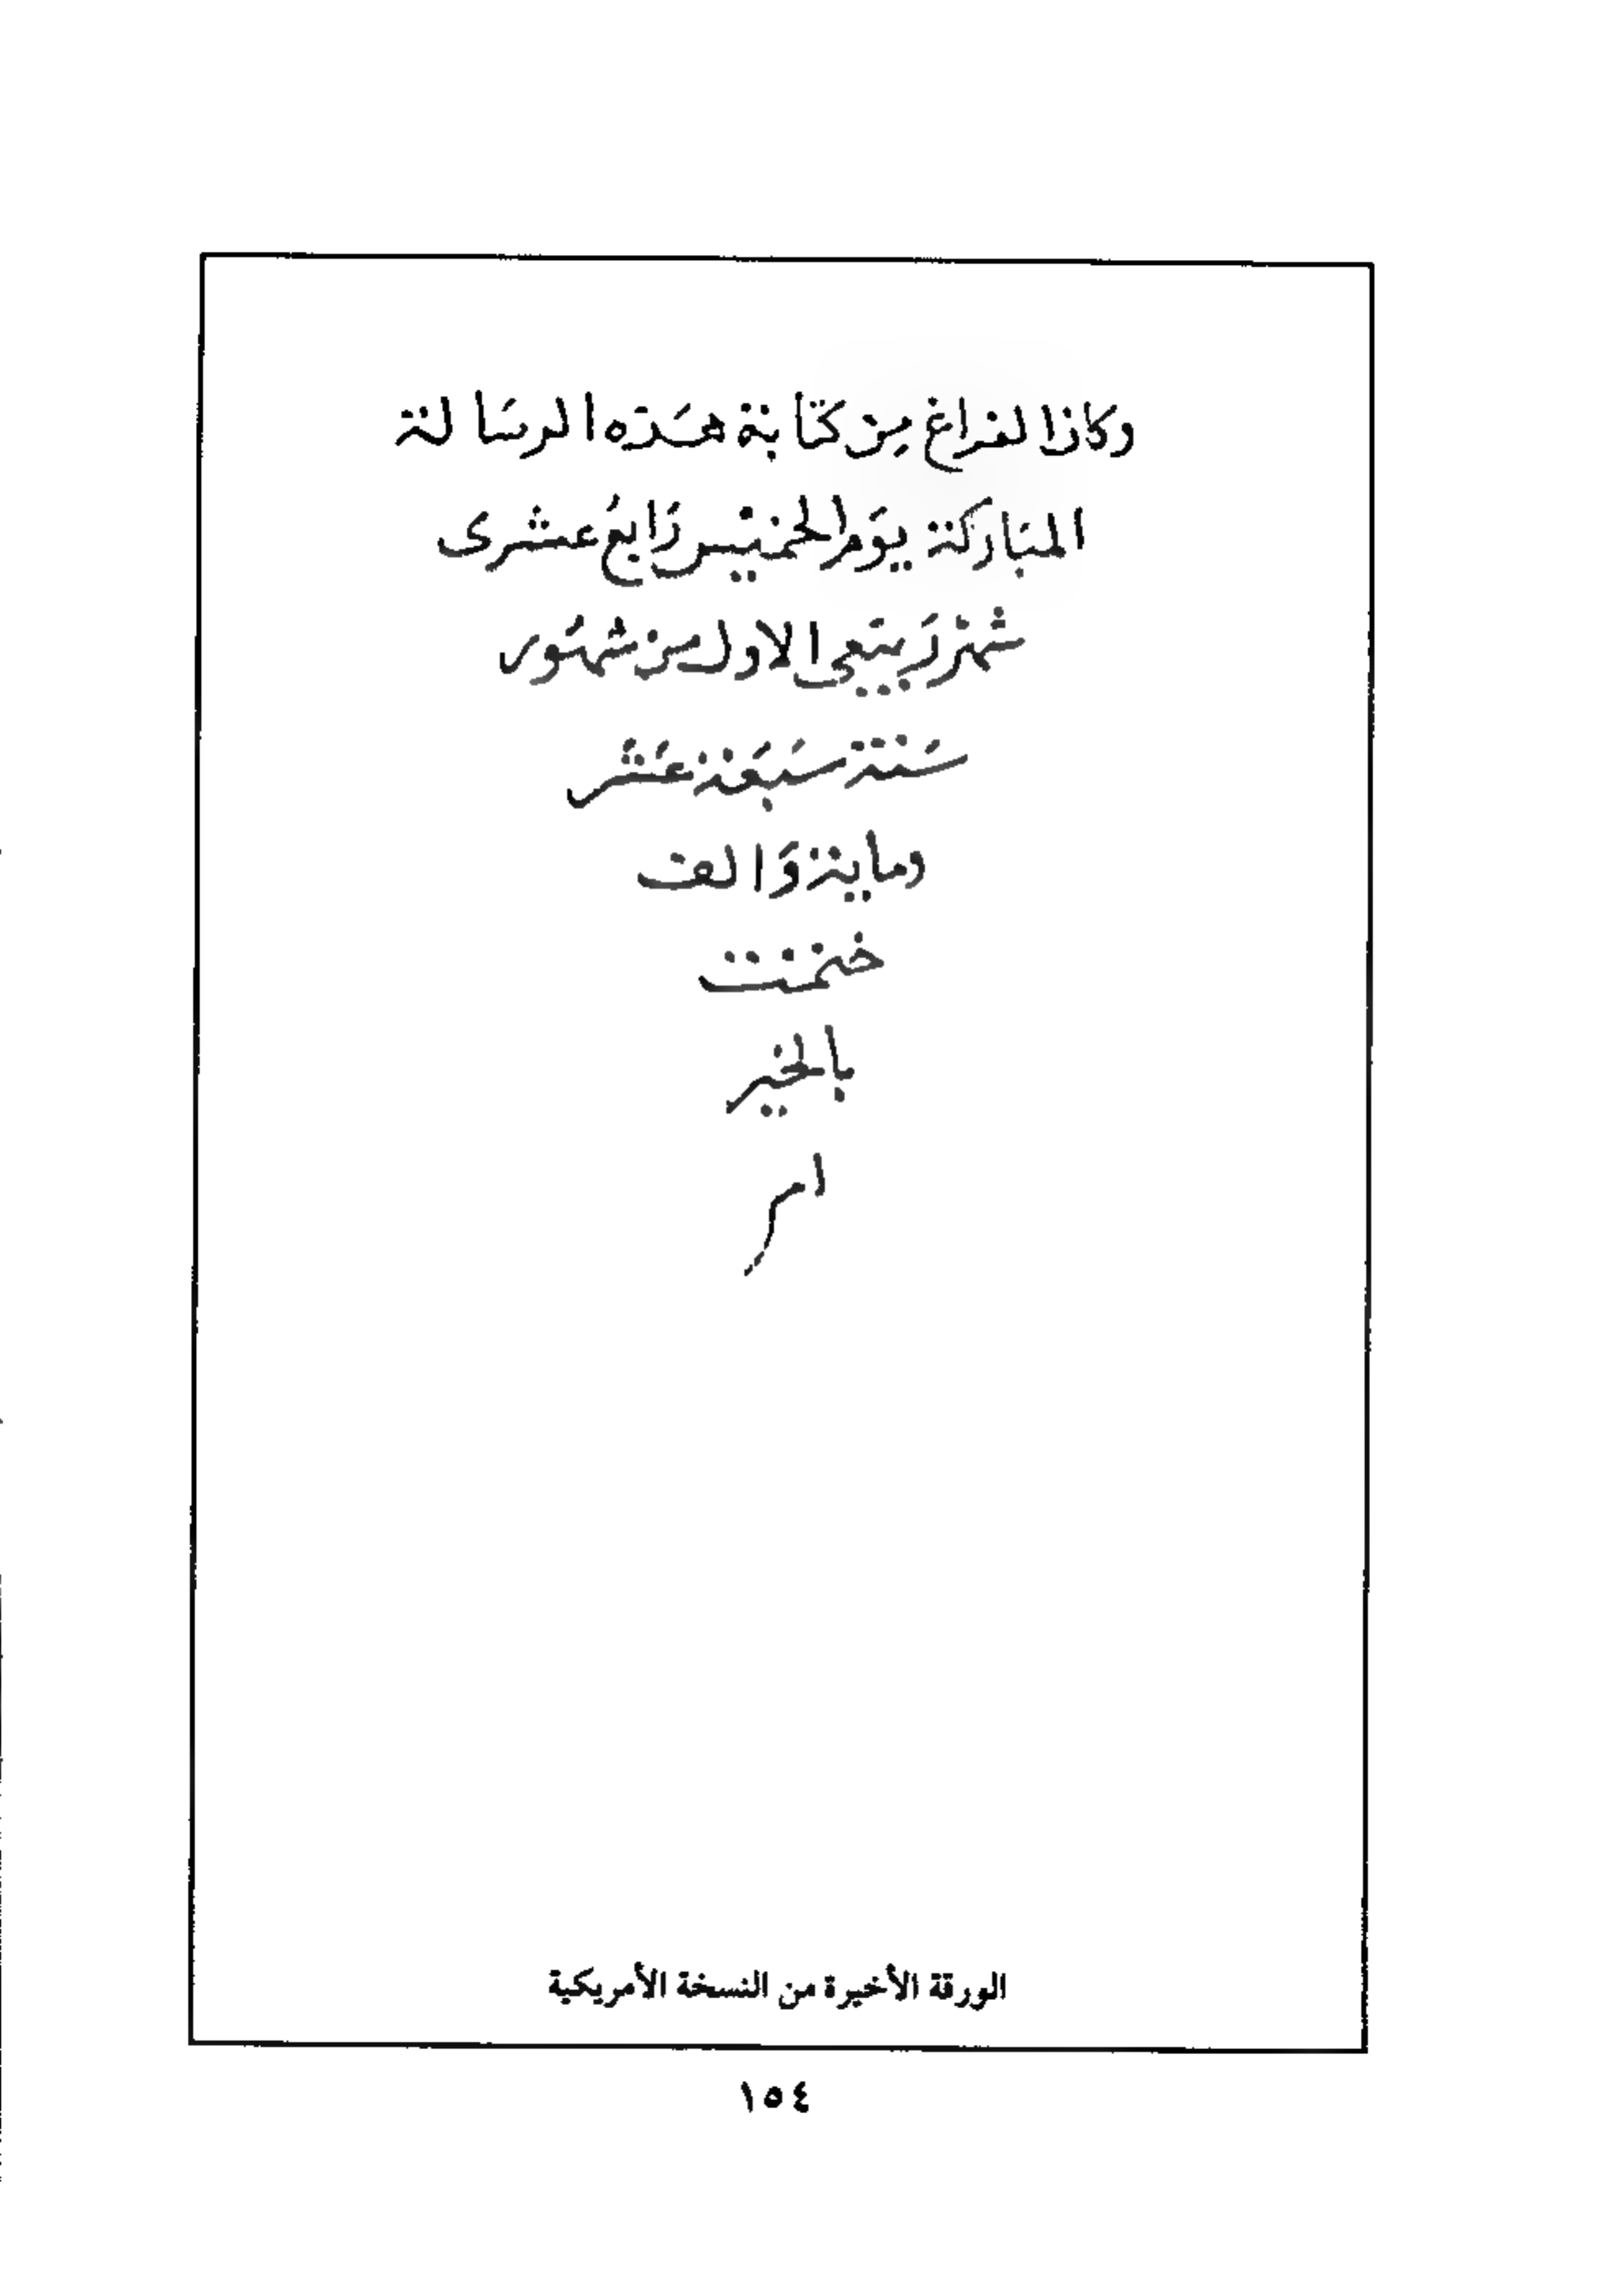 وكان الفراغ من كتابة هذه الرسالة
المباركة يوم الخميس رابع عشرى
شهر ربيعى الاول من شهور
سنة سبعة عشر
وماية والف
ختمت
بالخير
ام
الورقة الأخيرة من النسخة الأمريكية
١٥٤